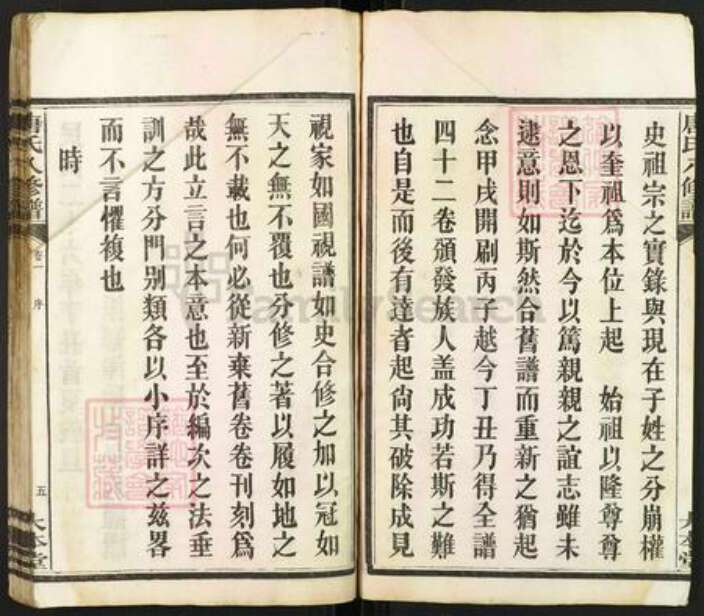 唐氏八修譜
史祖宗之實錄與現在子姓之分崩權
以奎祖爲本位上起　始祖以隆尊尊
之恩下迄於今以篤親親之誼志雖未
逮意則如斯然合舊譜而重新之猶起
念甲戌開刷丙子越今丁丑乃得全譜
四十二卷頒發族人盖成功若斯之難
也自是而後有達者起尙其破除成見
視家如國視譜如史合修之加以冠如
天之無不覆也分修之著以履如地之
無不載也何必從新棄舊卷卷刊刻爲
哉此立言之本意也至於編次之法垂
訓之方分門别類各以小序詳之兹畧
而不言懼複也
時
唐氏八修譜
卷一
序
五
大本堂
FamilySearch